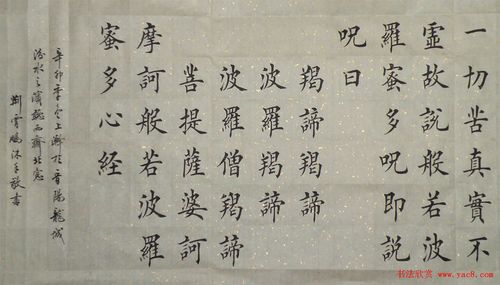 一切苦真實不
虛故說般若波
羅蜜多咒即說
咒曰
羯諦羯諦
波羅羯諦
波羅僧羯諦
菩提薩婆訶
摩訶般若波羅
蜜多心経
辛卯季冬上澣於晉陽龍城
汾水之濱魏西齋北窗
荆霄鵬沐手敬書
书法欣赏 www.yac8.com